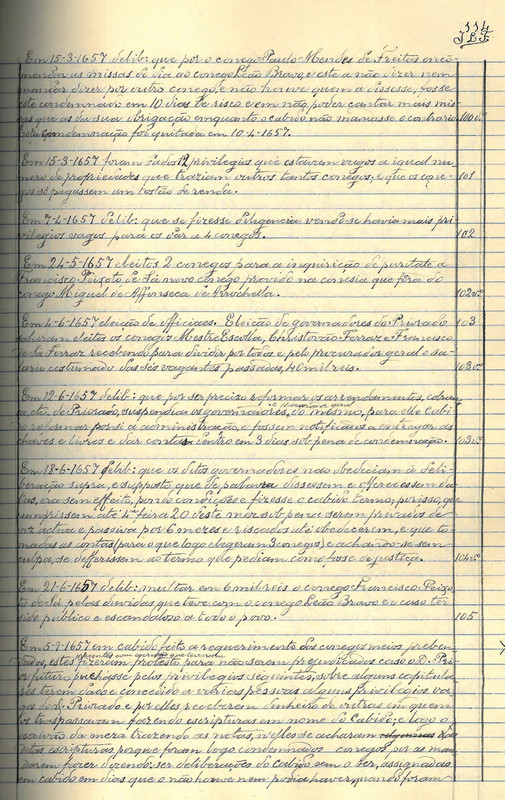 114
J.B.F.
Em 15-3-1657 delib: que por o conego Paulo Mendes de Freitas encom-
mendar as missas do dia ao conego Leão Bravo, e este a não dizer nem
mandar dizer por outro conego, e não houve quem a dissesse, fosse
este condemnado em 10 dias de risco e em não poder cantar mais mis-
sas que as da sua obrigação emquanto o cabido não mandasse o contrario 100 v.º
Esta condemnação foi quitada em 10-4-1657.
Em 15-3-1657 foram dados 12 privilegios que estavam vagos a igual nu-
mero de propriedades que traziam outros tantos conegos, e que os cone- 101
gos só pagassem um tostão de renda.
Em 7-4-1657 delib: que se fizesse diligencia vendo-se havia mais pri-
vilegios vagos para os dar a 4 conegos. 102
Em 24-5-1657 eleitos 2 conegos para a inquirição de puritate a
Francisco Peixoto de Sá novo conego provido na conesia que fôra do
conego Miguel de Affonseca de Arrochella. 102 v.º
Em 4-6-1657 eleição de officiaes. Eleição de governadores do Priorado 103
sahiram eleitos os conegos Mestre Escolla, Christovão Ferraz e Francisco
de Sá Ferraz recebendo para dividir por todos e pelo procurador geral o sa-
lario costumado das sés vagantes passadas, 40 mil reis. 103 v.º
Em 12-6-1657 delib: que por ser preciso reformar os arrendamentos, cobran-
ça, etc. do Priorado, suspendia os governadores e procurador geral do mesmo, para elle Cabi-
do reformar por si a administração, e fossem notificados a entregar as
chaves e livros e dar contas dentro em 3 dias sob pena de condemnação. 103 v.º
Em 18-6-1657 delib: que os ditos governadores não obedeciam á deli-
beração supra, e supposto que de palavra dissessem e offerecessem du-
vidas, era sem effeito, pondo condições e fizesse o cabido termo; por isso, que
cumprissem até 4ª feira 20 deste mez sob pena serem privados de
voz activa e passiva por 6 mezes e riscados até obedecerem, e que to-
madas as contas (para o que logo elegeram 3 conegos) e achando-se sem
culpa, se defferissem ao termo que pediam como fosse de justiça. 104 v.º
Em 21-6-1657 delib: multar em 6 mil reis o conego Francisco Peixo-
to de Sá pelas duvidas que teve com o conego Leão Bravo e o caso ter
sido publico e escandaloso a todo o povo. 105
Em 5-7-1657 em cabido feito a requerimento dos conegos meios preben-
dados, estes fizeram protesto para não serem prejudicados caso o D. Pri-
or futuro puchasse pelos privilegios seguintes, sobre alguns capitula-
res terem dado e concedido a varias pessoas alguns privilegios va-
gos do d.º Priorado e por elles receberam dinheiro de outras em quem
os traspassavam fazendo escripturas em nome do Cabido; e logo o
escrivão da meza trazendo as notas, nelles se acharam algumas das
ditas escripturas porque foram logo condemnados conegos, por as man-
darem fazer dizendo: ser deliberações do Cabido sem o ser, assignadas
em cabido em dias que o não houve nem podia haver, quando foram